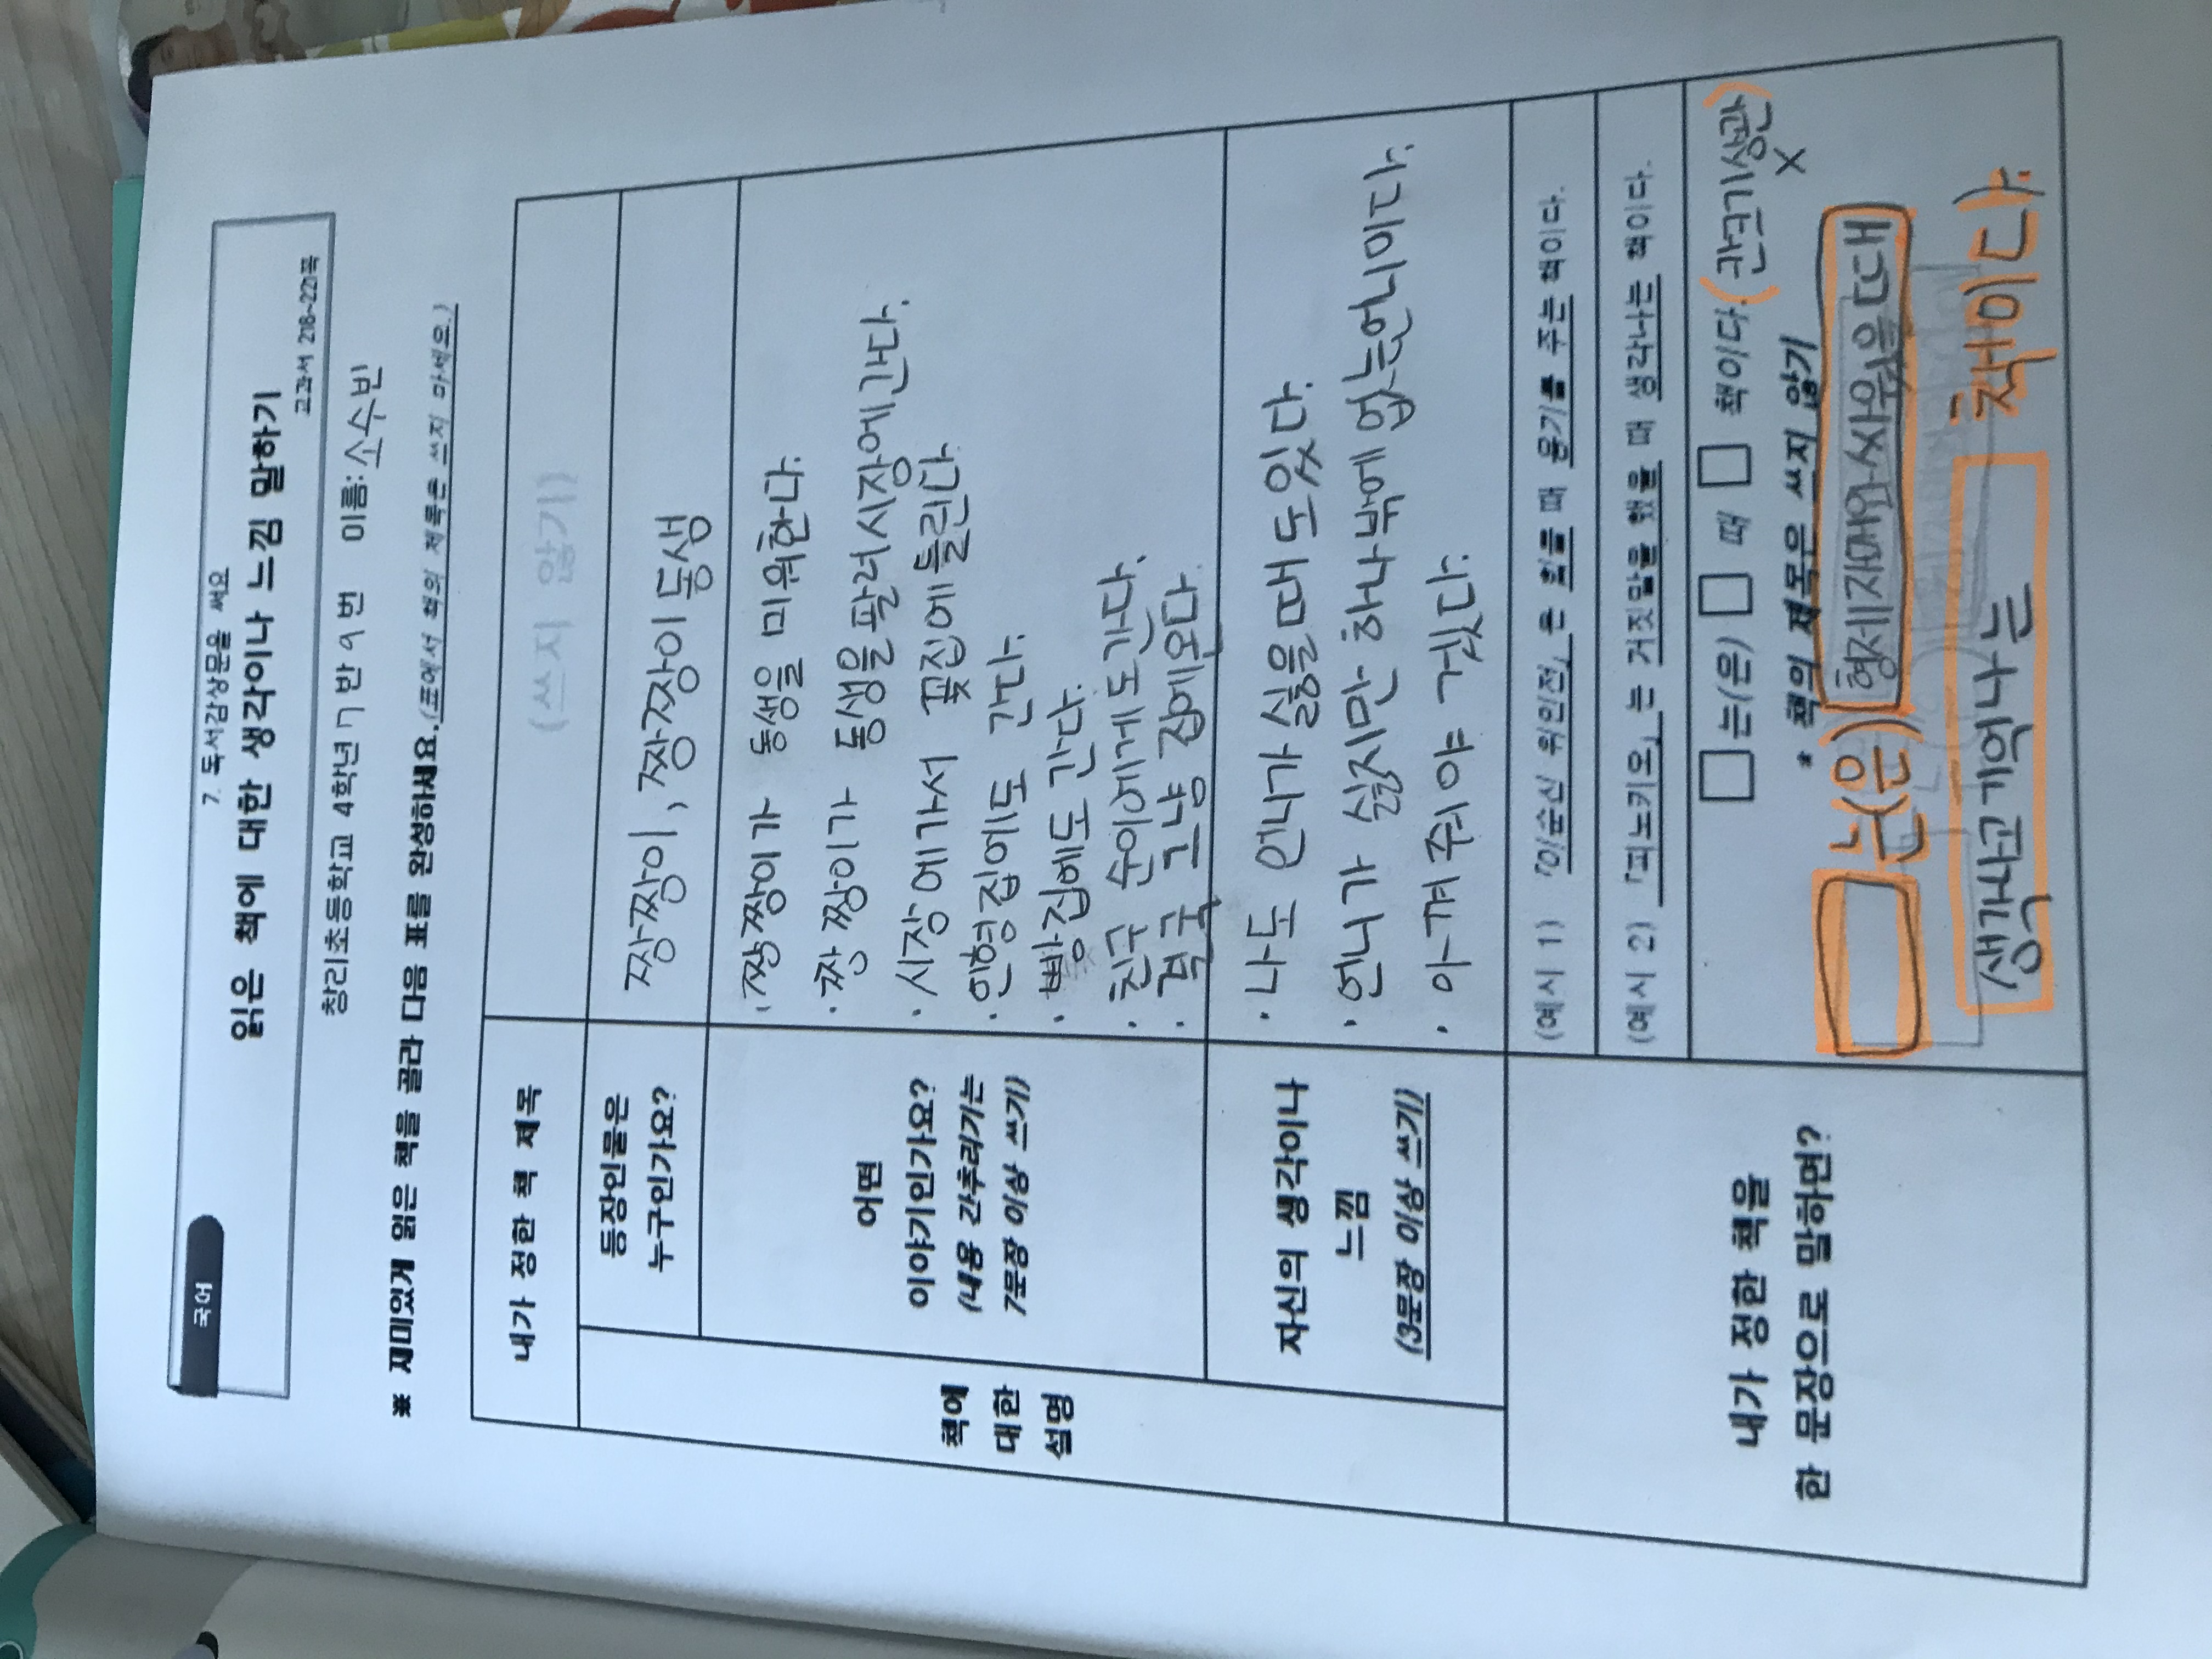 국어
7. 독서감상문을 써요
읽은 책에 대한 생각이나 느낌 말하기
교과서 218~221쪽
창리초등학교 4학년 7 반 9 번 이름: 소수빈
※ 재미있게 읽은 책을 골라 다음 표를 완성하세요.(표에서 책의 제목은 쓰지 마세요.)
내가 정한 책 제목
(쓰지 않기)
책에
대한
설명
등장인물은
누구인가요?
짱짱이, 짱짱이 동생
어떤
이야기인가요?
(내용 간추리기는
7문장 이상 쓰기)
· 짱짱이가 동생을 미워한다.
· 짱짱이가 동생을 팔러 시장에 간다.
· 시장에가서 꽃집에 들린다.
· 인형집에도 간다.
· 빵집에도 간다.
· 친구 순이에게도 간다.
· 결국 그냥 집에온다.
자신의 생각이나
느낌
(3문장 이상 쓰기)
· 나도 언니가 싫을때도있다.
· 언니가 싫지만 하나밖에 없는언니이다.
· 아껴줘야 겠다.
내가 정한 책을
한 문장으로 말하면?
(예시 1) 「이순신 위인전」은 힘들 때 용기를 주는 책이다.
(예시 2) 「피노키오」는 거짓말을 했을 때 생각나는 책이다.
□는(은) □ 때 □ 책이다. (칸크기상관
X)
* 책의 제목은 쓰지 않기
는(은) 형제자매와싸웠을때
생각나고기억나는 책이다.